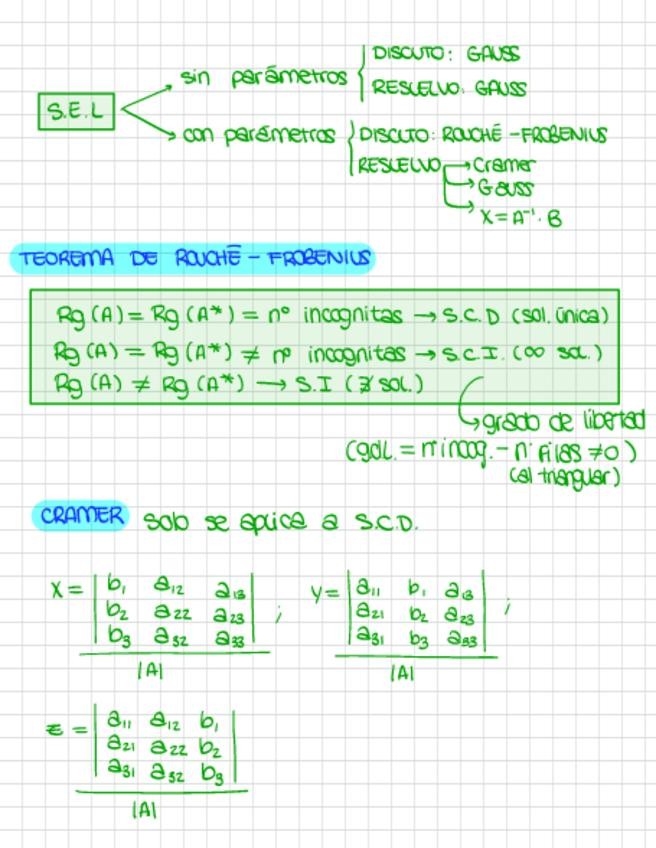 S.E.L
sin parámetros
DISCUTO: GAUSS
RESUELVO: GAUSS
con parámetros
DISCUTO: ROUCHÉ - FROBENIUS
RESUELVO → Cramer
→ Gauss
→ X = A⁻¹ · B
TEOREMA DE ROUCHÉ - FROBENIUS
Rg (A) = Rg (A*) = nº incognitas → S.C.D (sol. única)
Rg (A) = Rg (A*) ≠ nº incognitas → S.C.I. (∞ sol.)
Rg (A) ≠ Rg (A*) → S.I (∄ sol.)
grado de libertad
(gdl. = nºincog. - nº filas ≠ 0)
(al triangular)
CRAMER solo se aplica a S.C.D.
X = | b₁ a₁₂ a₁₃ | ; Y = | a₁₁ b₁ a₁₃ | ;
| b₂ a₂₂ a₂₃ | | a₂₁ b₂ a₂₃ |
| b₃ a₃₂ a₃₃ | | a₃₁ b₃ a₃₃ |
|A| |A|
z = | a₁₁ a₁₂ b₁ |
| a₂₁ a₂₂ b₂ |
| a₃₁ a₃₂ b₃ |
|A|